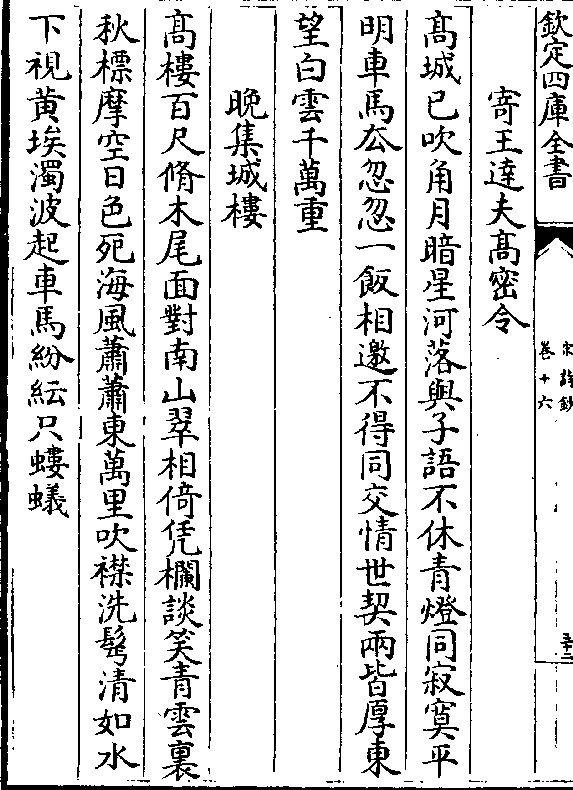 欽定四庫全書
宋詩鈔
卷十六
寄王達夫髙密令
髙城已吹角月暗星河落與子語不休青燈同寂寞平
明車馬厺忽忽一飯相邀不得同交情世契兩皆厚東
望白雲千萬重
晩集城樓
髙樓百尺脩木尾面對南山翠相倚凭欄談笑青雲裏
秋標摩空日色死海風蕭蕭東萬里吹襟洗髩清如水
下視黄埃濁波起車馬紛紜只螻蟻